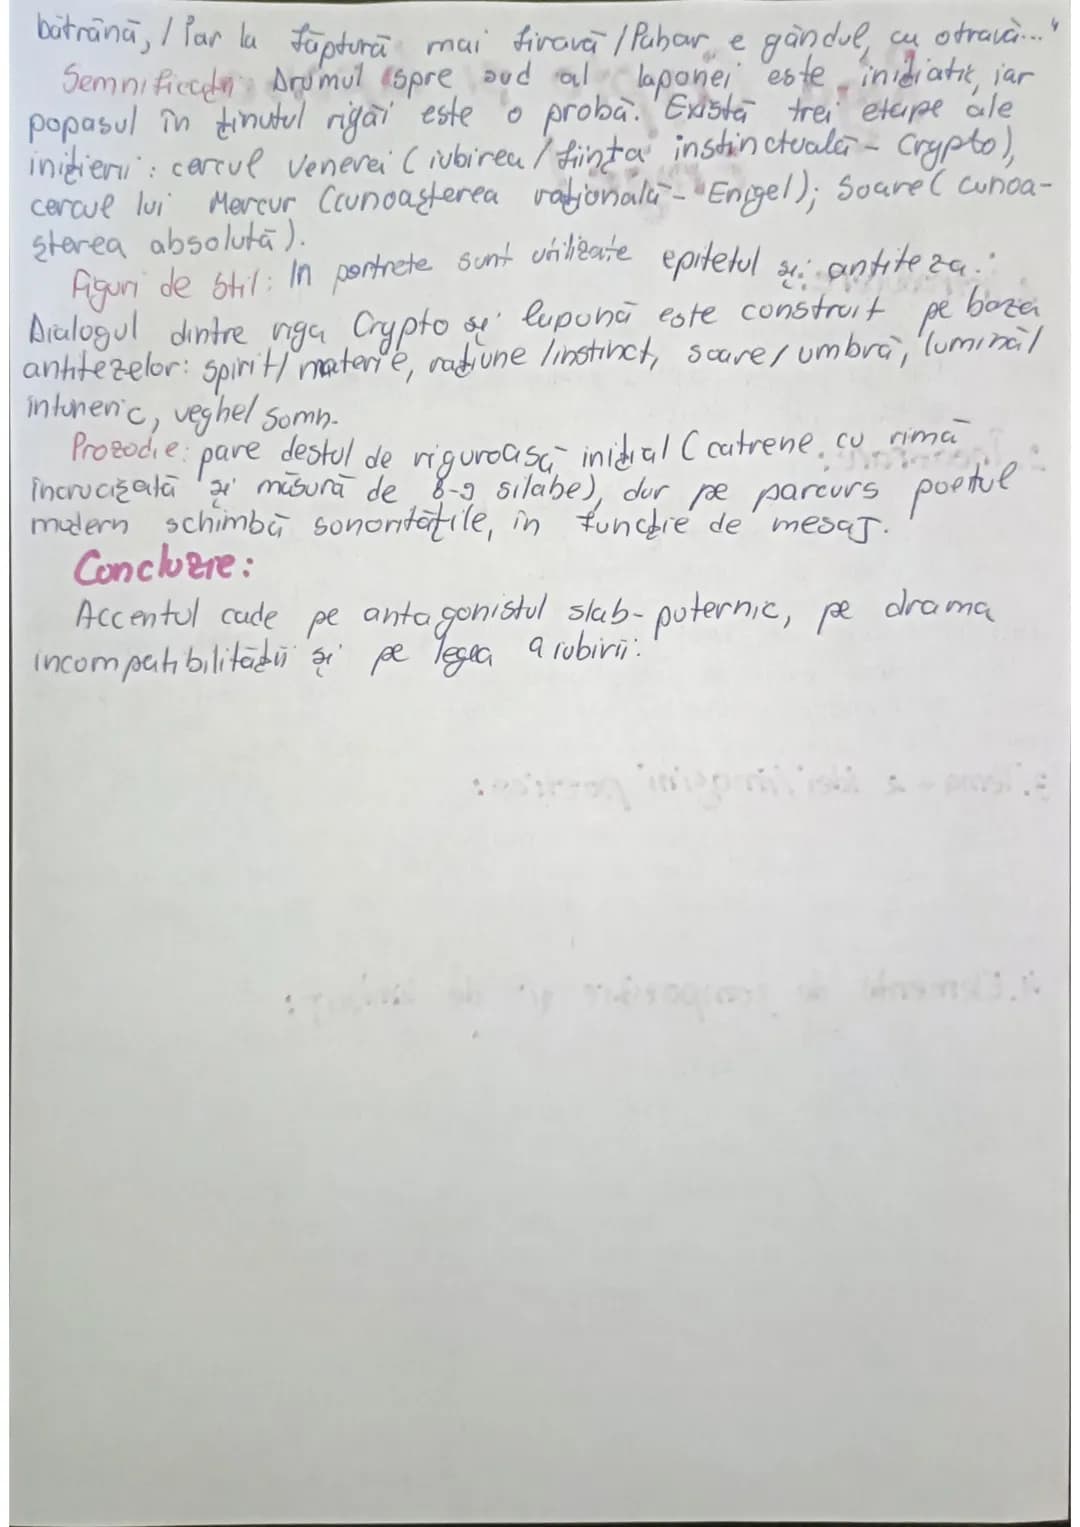 bătrână, / Iar la făptură mai firavă / Pahar e gândul, cu otravă..."
Semnificații: Drumul spre sud al laponei este inițiatic, iar
popasul în ținutul rigăi este o probă. Există trei etape ale
inițierii: cercul Venerei (iubirea / ființa instinctuală - Crypto),
cercul lui Mercur (cunoașterea rațională - Enigel); Soare (cunoa-
șterea absolută).
Figuri de stil: În portrete sunt utilizate epitetul și antiteza.
Dialogul dintre riga Crypto și laponă este construit pe baza
antitezelor: spirit/ materie, rațiune /instinct, soare/ umbră, lumină/
întuneric, veghe/ somn.
Prozodie: pare destul de riguroasă inițial (catrene cu rimă
încrucișată și măsură de 8-9 silabe), dar pe parcurs poetul
modern schimbă sonoritățile, în funcție de mesaj.
Concluzie:
Accentul cade pe antagonistul slab-puternic, pe drama
incompatibilității și pe legea a iubirii.
3. Tema - 2 idei/imagini poetice:
4. Elemente de compoziție și de limbaj: